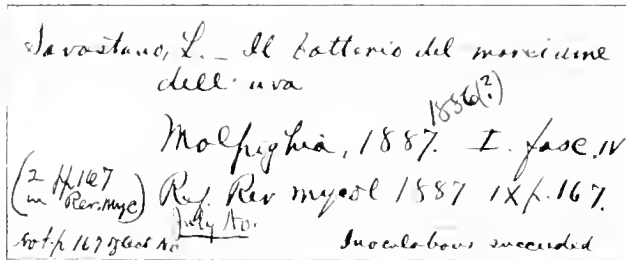 Savastano, L. – Il batterio del marciume
dell' uva
Malpighia, 1887. I. fasc. IV
1886(?)
(2 pp. 167 in Rev. myc) Ref. Rev mycol 1887 IX p. 167.
July No.
not p 167 of Oct No Inoculations succeeded